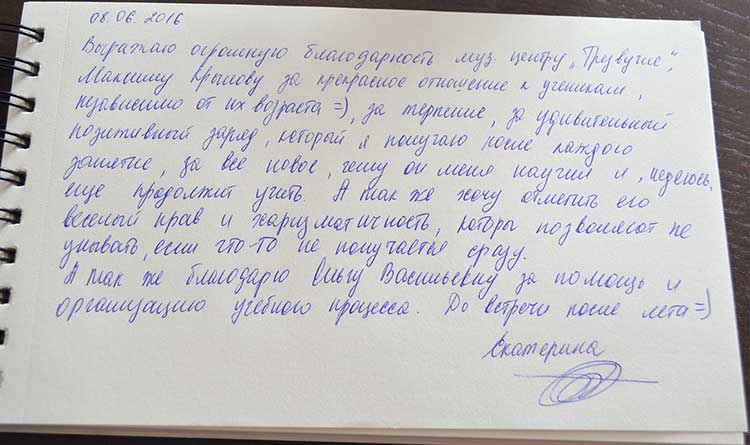 08.06.2016
Выражаю огромную благодарность муз. центру „Трезвучие",
Максиму Крылову за прекрасное отношение к ученикам,
независимо от их возраста =), за терпение, за удивительный
позитивный заряд, который я получаю после каждого
занятие, за все новое, чему он меня научил и, надеюсь,
еще продолжит учить. А так же хочу отметить его
веселый нрав и харизматичность, которы позволяют не
унывать, если что-то не получается сразу.
А так же благодарю Ольгу Васильевну за помощь и
организацию учебного процесса. До встречи после лета =)
Екатерина